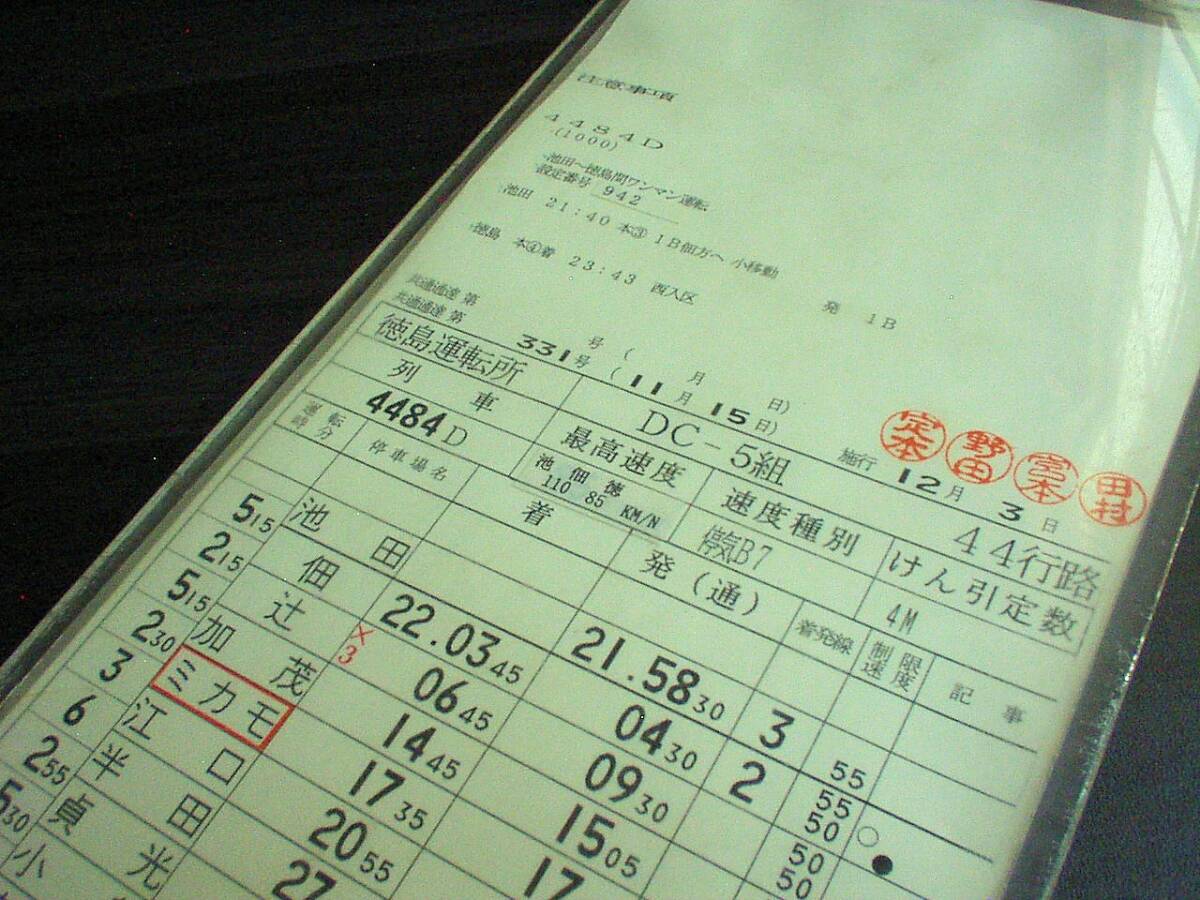 注意事項
4484D
(1000)
池田～徳島間ワンマン運転
設定番号 942
池田 21:40 本③ 1B佃方へ 小移動
発 1B
徳島 本④着 23:43 西入区
共通通達 第 号 ( 月 日)
共通通達 第 331号 (11月15日)
定本 野田 宮本 田村
徳島運転所 DC-5組 施行 12月 3日 44行路
列車 最高速度 速度種別 けん引定数
4484D 池 佃 徳 110 85 KM/N 停気B7 4M
運転時分 停車場名 着 発(通) 着発線 制限速度 記事
池田 21.5830 3
515 佃 22.0345 0430 2 55
215 辻 ×3 0645 0930 55
515 加茂 1445 1505 50 ○
230 ミカモ 1735 17 50 ●
3 江口 2055 50
6 半田 27
255 貞光
530 小